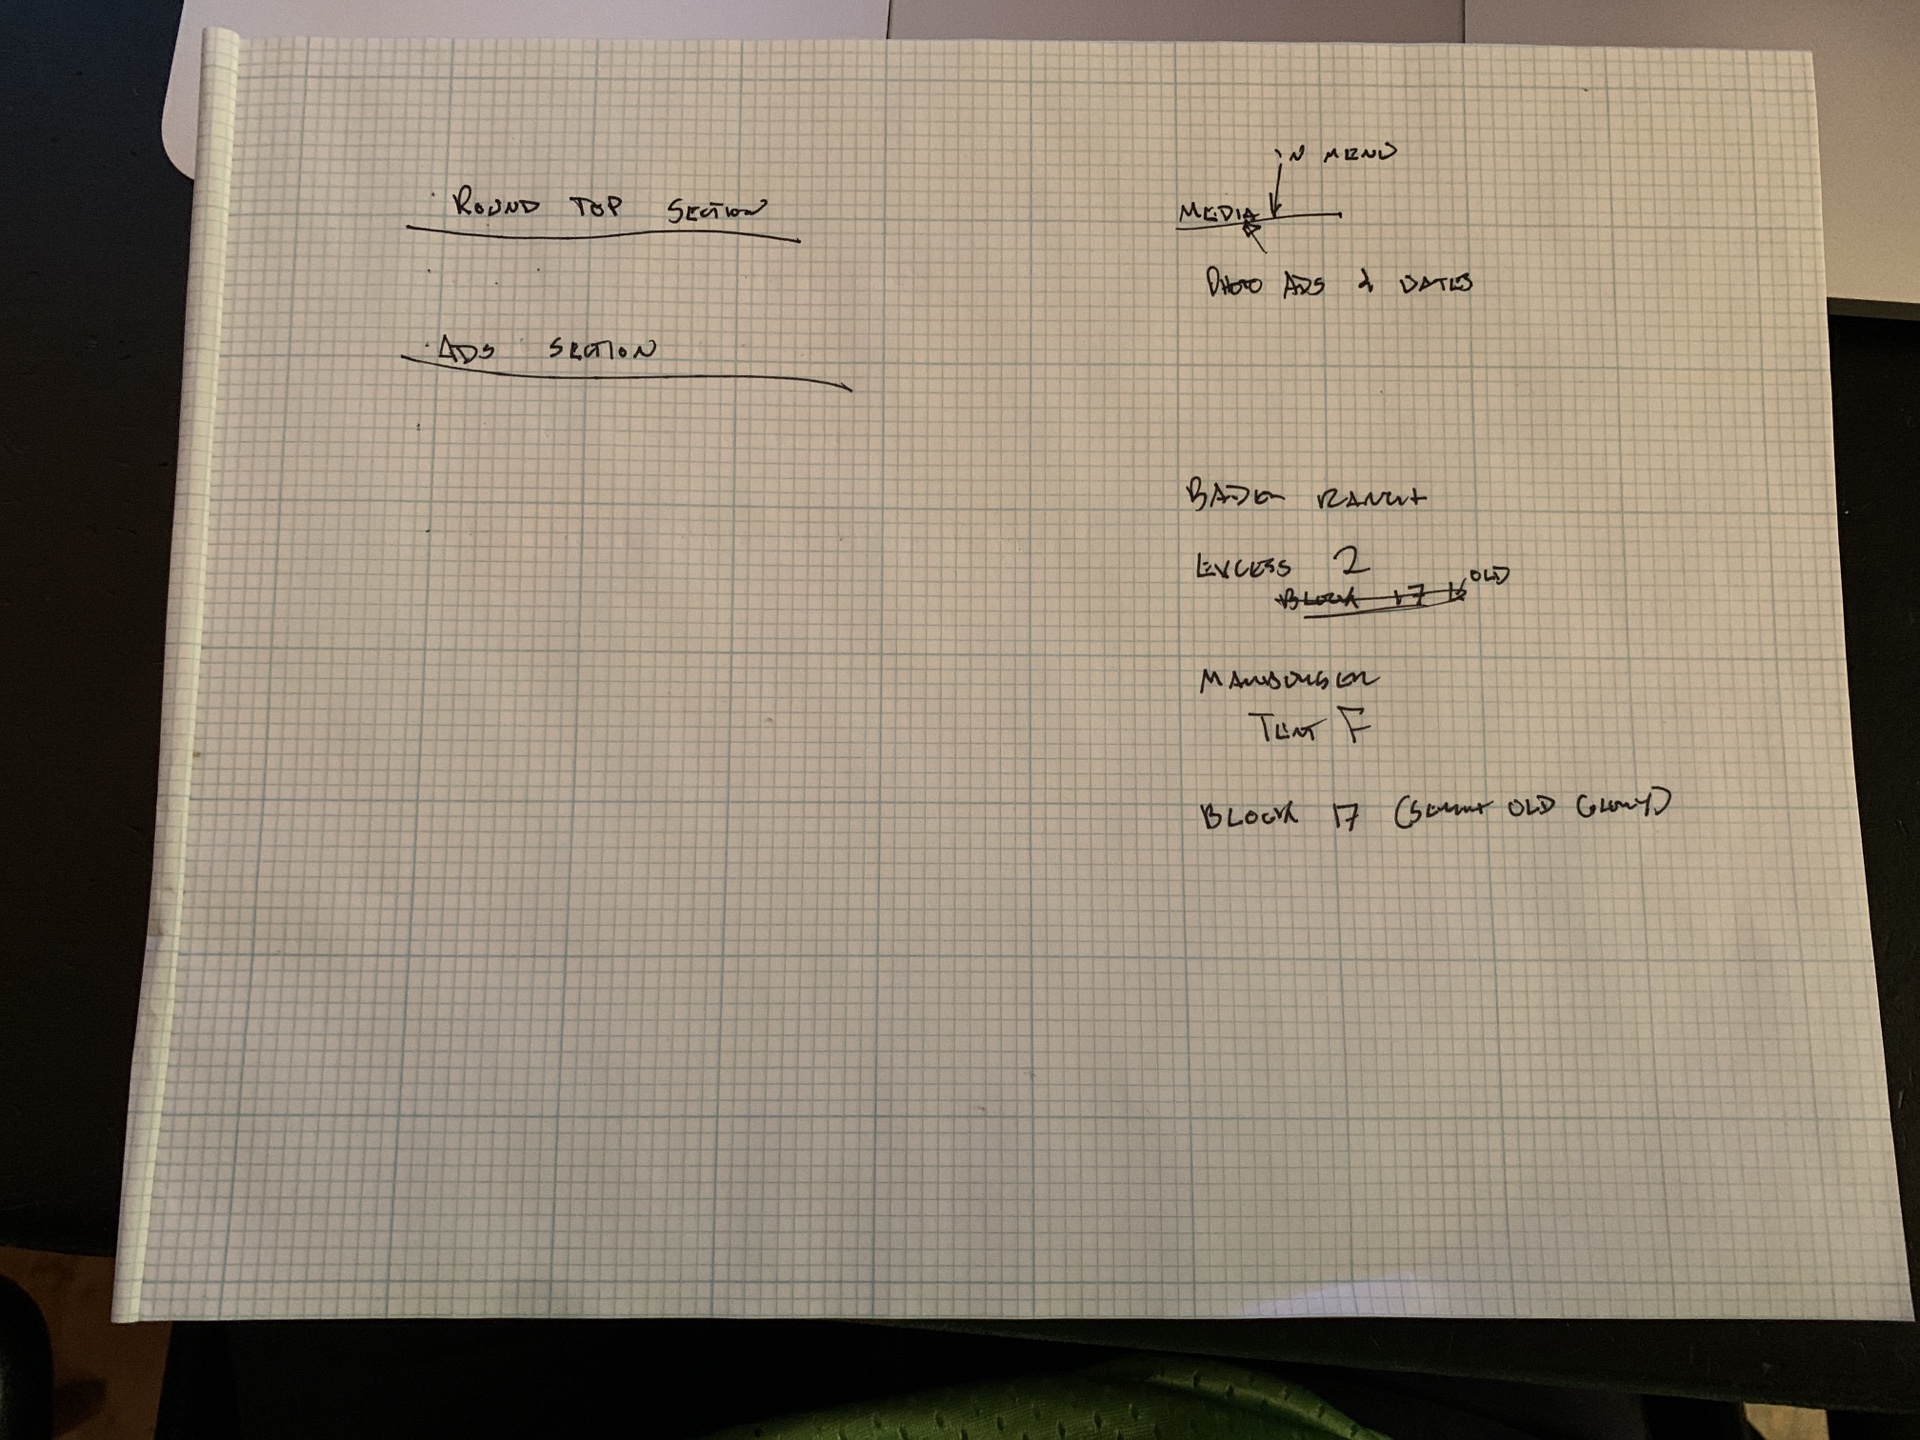 ROUND TOP SECTION
ADS SECTION
IN MENU
MEDIA
PHOTO ADS & DATES
BADER RANCH
EXCESS 2
BLOCK 17 OLD
MARBURGER
TENT F
BLOCK 17 ( OLD GLORY)